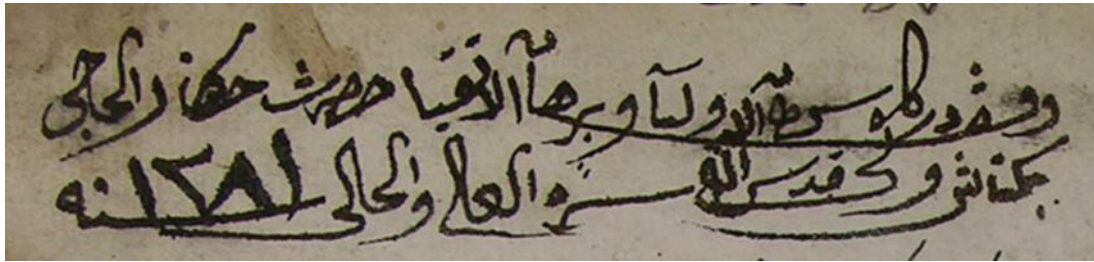 وقف دركاه سلطان الاوليآ و برهان الاتقيا حضرت خنكار الحاجي
بكتاش ولى قدس الله سره العالى والحالى سنه ١٢٨١